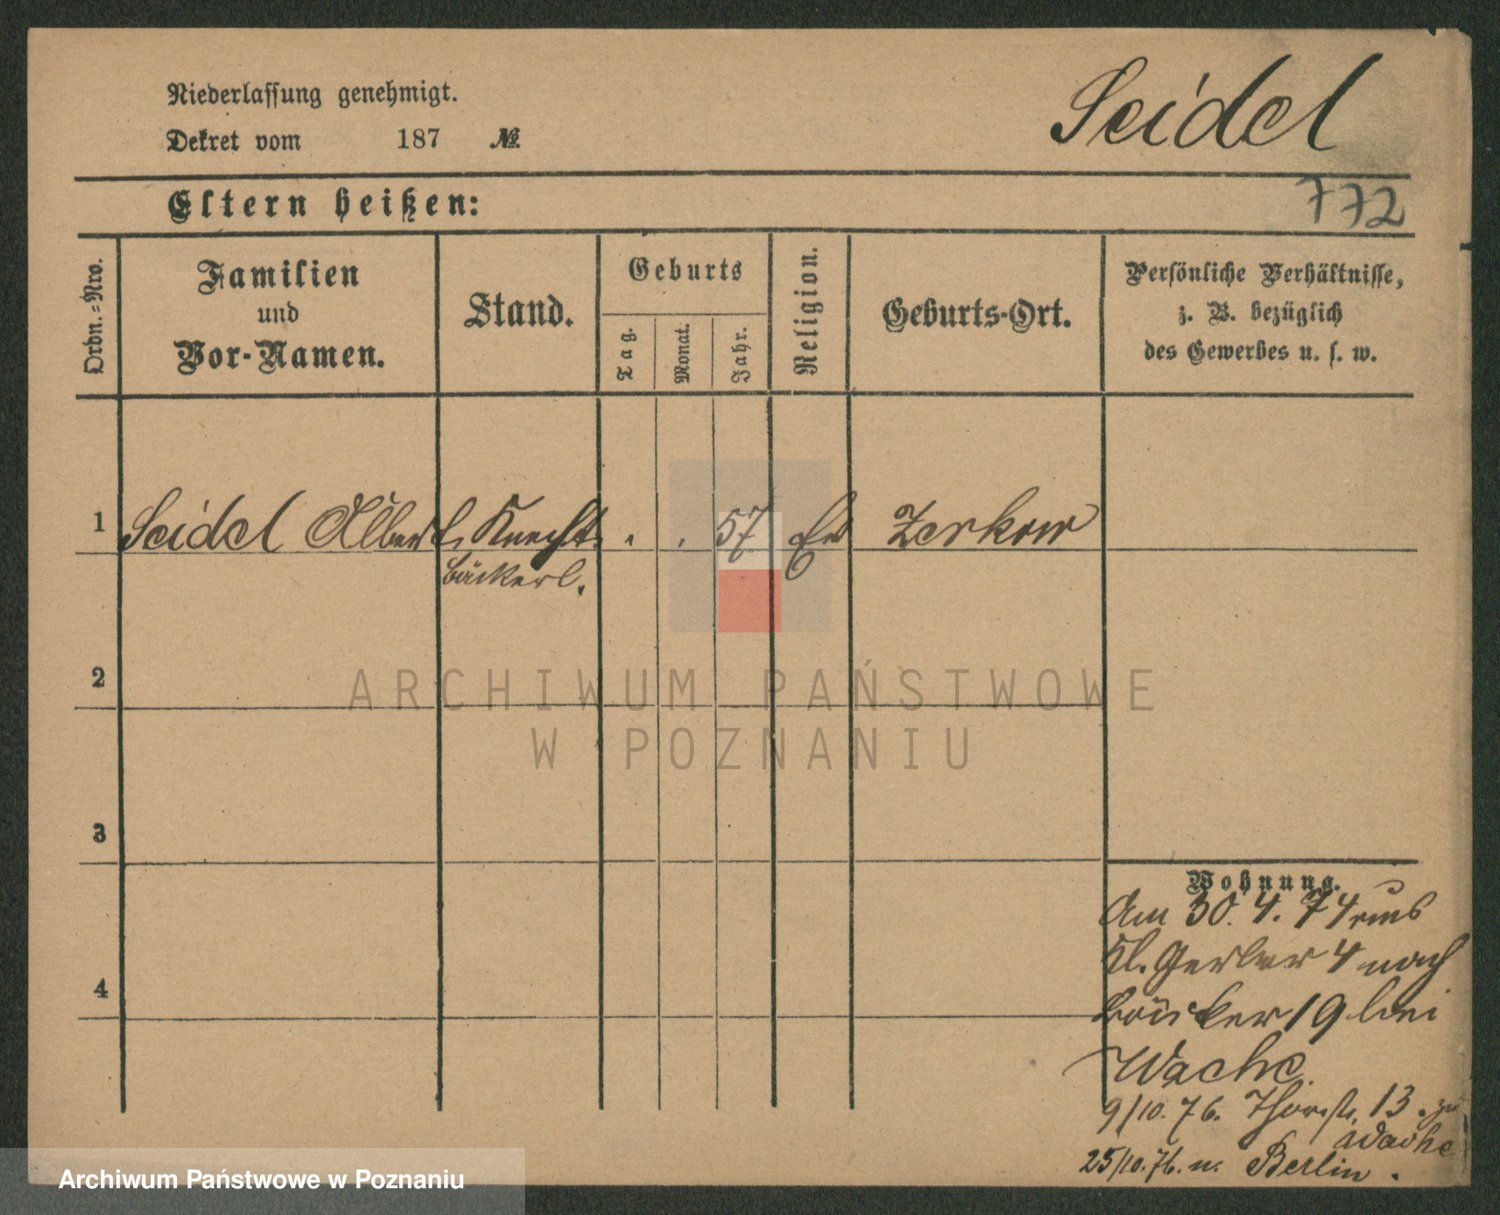 Seidel
Niederlassung genehmigt.
Dekret vom 187 №
772
Eltern heißen:
Ordn.-Nro.
Familien
und
Vor-Namen.
Stand.
Geburts
Tag.
Monat.
Jahr.
Religion.
Geburts-Ort.
Persönliche Verhältnisse,
z. B. bezüglich
des Gewerbes u. s. w.
1 Seidel Albert Knecht . . 57 Ev Zerkow
Bäckerl.
2
3
4
Wohnung.
Am 30. 4. 74 aus
Kl. Gerber 4 nach
Bäcker 19 bei
Wache.
9/10. 76. Thorstr. 13. zu
Wache
25/10. 76. n. Berlin.
ARCHIWUM PAŃSTWOWE
W POZNANIU
Archiwum Państwowe w Poznaniu